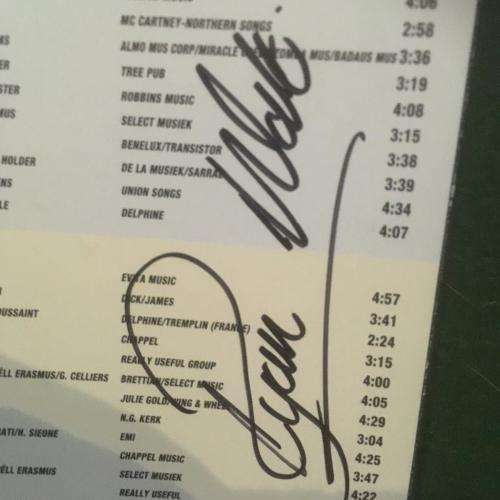 4:06
MC CARTNEY-NORTHERN SONGS 2:58
ALMO MUS CORP/MIRACLE MUS/BADAUS MUS 3:36
TREE PUB 3:19
ROBBINS MUSIC 4:08
SELECT MUSIEK 3:15
BENELUX/TRANSISTOR 3:38
HOLDER DE LA MUSIEK/SARRA 3:39
UNION SONGS 4:34
DELPHINE 4:07
EVITA MUSIC 4:57
DICK/JAMES 3:41
OUSSAINT DELPHINE/TREMPLIN (FRANCE) 2:24
CHAPPEL 3:15
REALLY USEFUL GROUP 4:00
ÉLL ERASMUS/G. CELLIERS BRETTIAN/SELECT MUSIC 4:05
JULIE GOLD/WING & WHEEL 4:29
N.G. KERK 3:04
ATI/H. SIEONE EMI 4:25
CHAPPEL MUSIC 3:47
ÉLL ERASMUS SELECT MUSIEK 4:22
REALLY USEFUL
Ryan